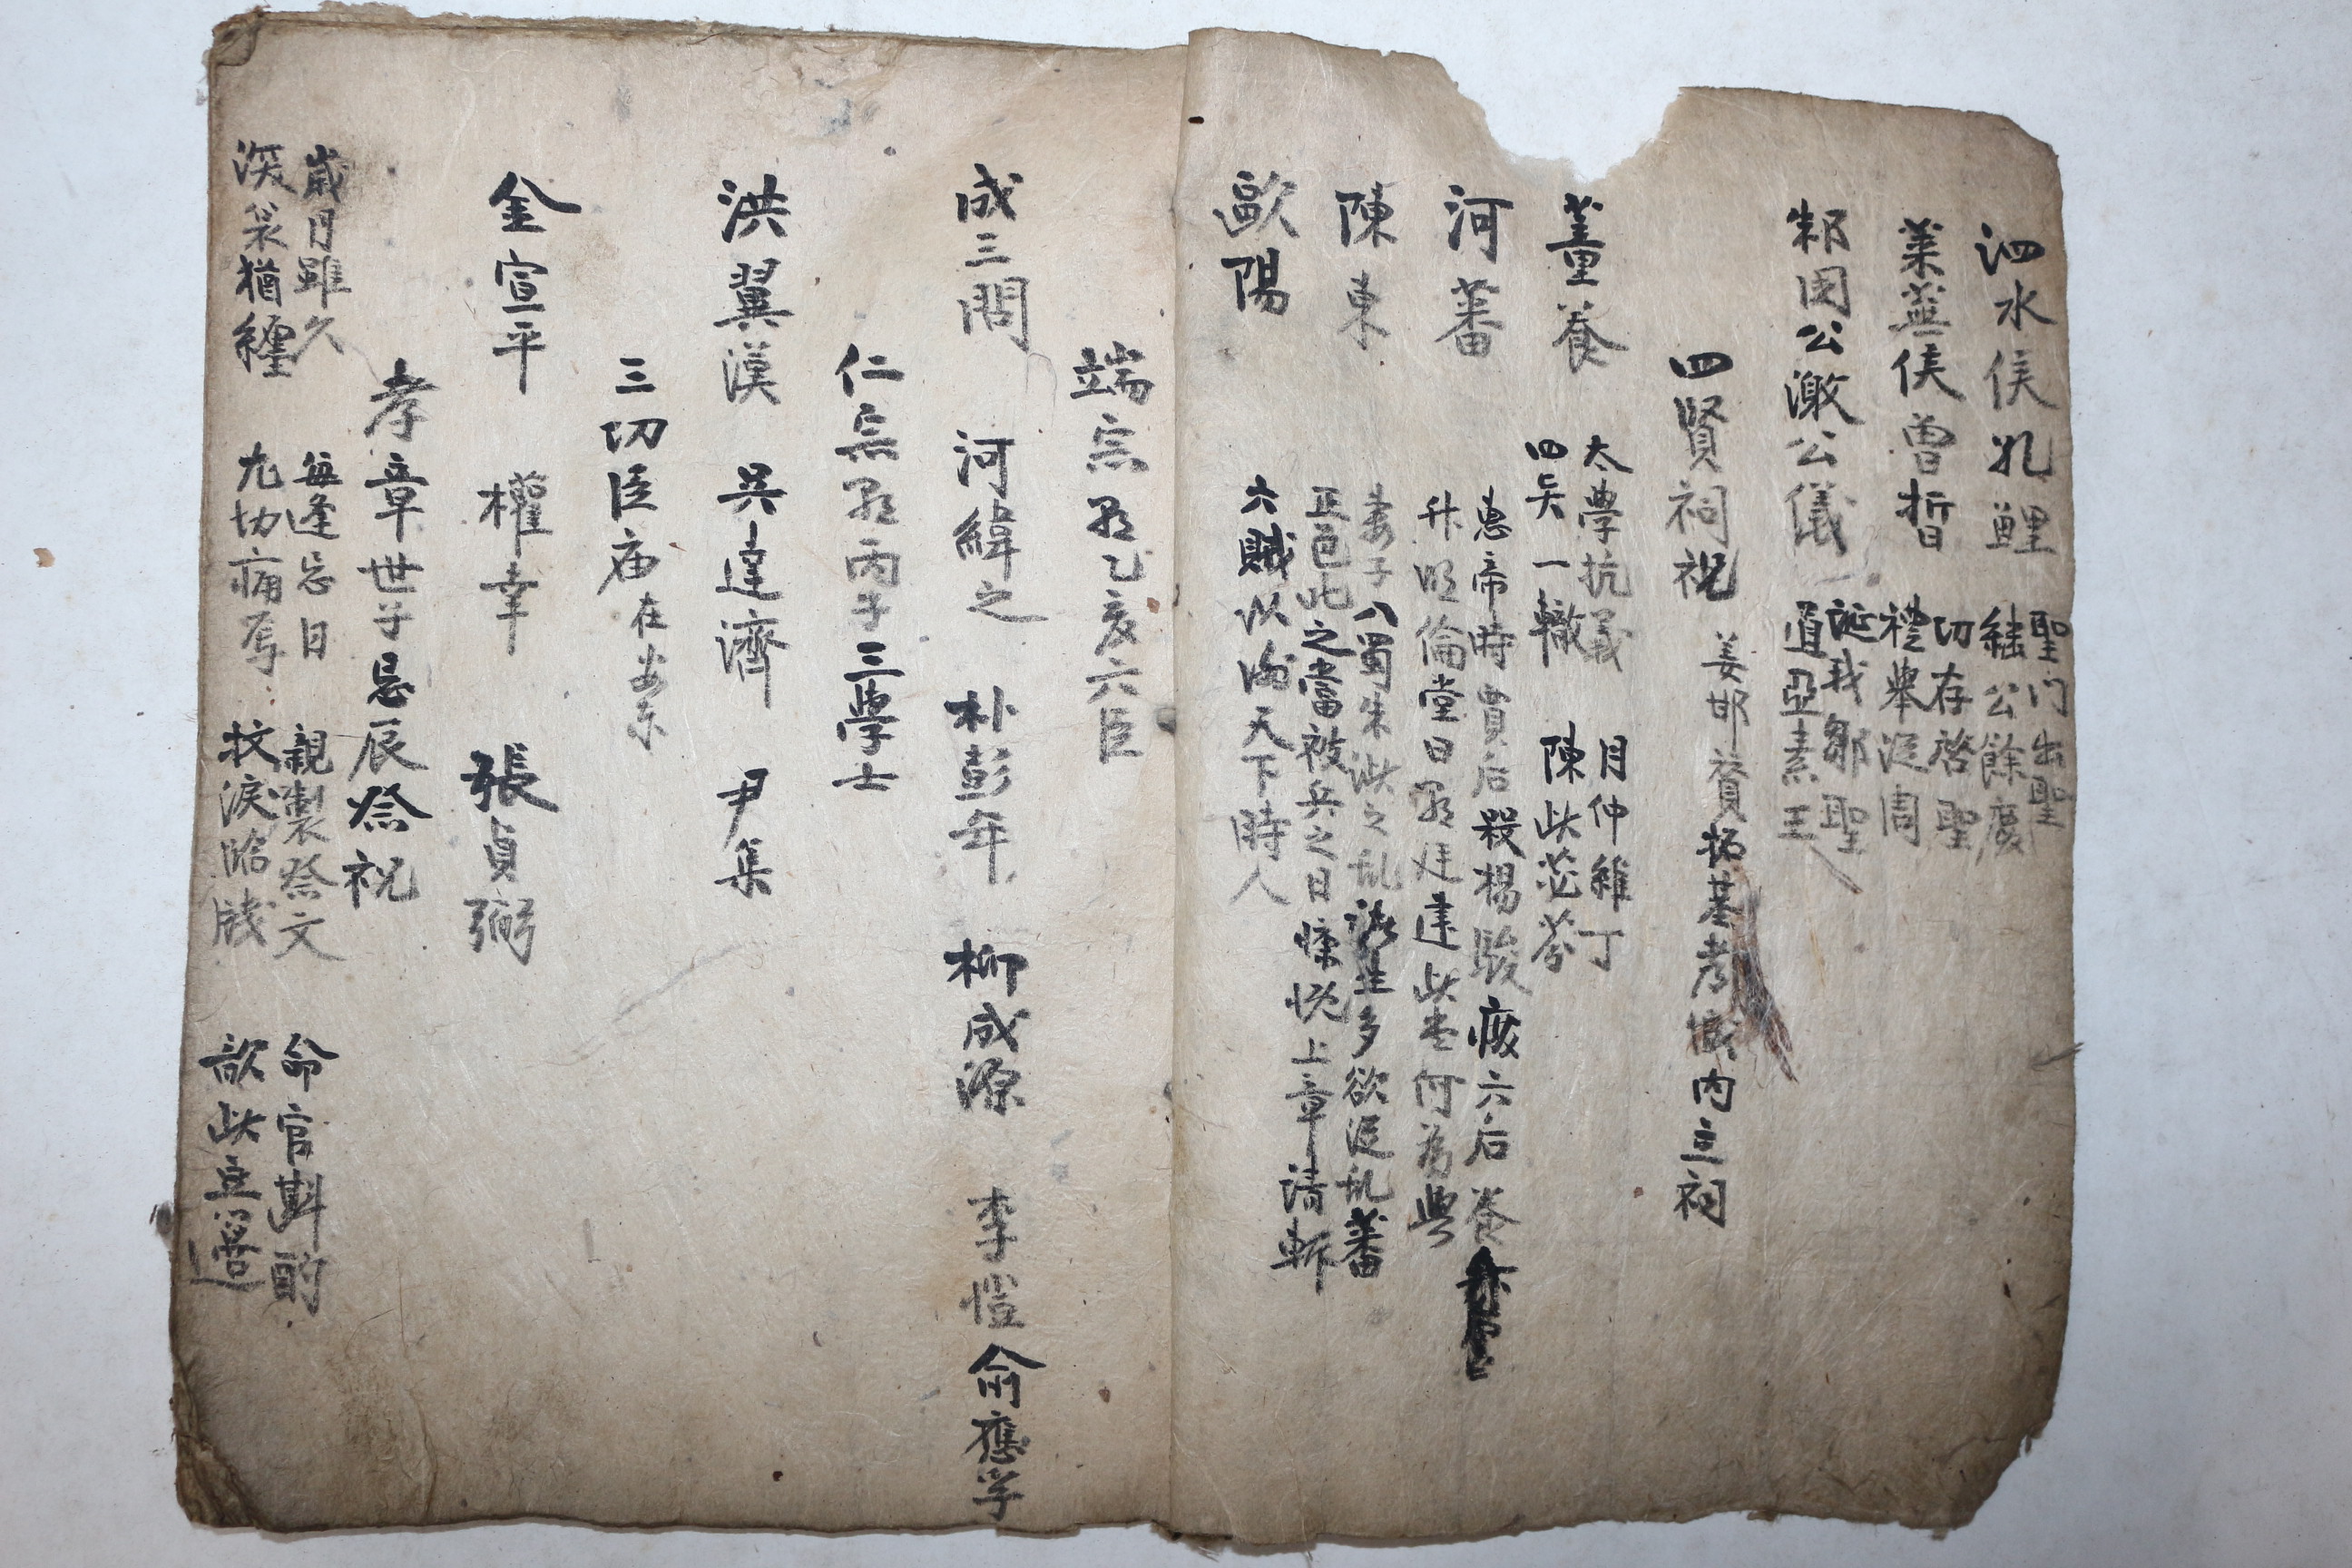 泗水侯孔鯉 聖門出聖
継公餘慶
萊蕪侯曾晳 切存啓聖
禮舉從周
邾国公激公儀 誕我鄒聖
道亞素王
四賢祠祝 姜邯賛拓基考城內立祠
董養 太學抗義 月仲維丁
四矣一轍 陳此苾芬
河蕃 惠帝時賈后殺楊駿廢六后養
升明倫堂曰朝廷建此堂何為與
陳東 妻子入蜀朱泚之乱諸生多欲從乱蕃
正色叱之當被兵之日慷慨上章請斬
歐陽 六賊以謝天下時人
端宗朝乙亥六臣
成三問 河緯之 朴彭年 柳成源 李愷 俞應孚
仁宗朝丙子三學士
洪翼漢 吳達濟 尹集
三切臣庙在安东
金宣平 權幸 張貞弼
孝章世子忌辰祭祝
歲月雖久 每逢忌日 親製祭文 命官斟酌
深哀猶纏 尤切痛焉 抆淚臨牋 歆此豆籩